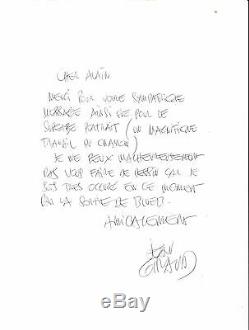 CHER ALAIN
MERCI POUR VOTRE SYMPATHIQUE
MESSAGE AINSI QUE POUR LE
SUPERBE PORTRAIT (UN MAGNIFIQUE
TRAVAIL AU CRAYON)
JE NE PEUX MALHEUREUSEMENT
PAS VOUS FAIRE DE DESSIN CAR JE
SUIS TRES OCCUPÉ EN CE MOMENT
PAR LA SORTIE DE BLUEB
AMICALEMENT
JEAN
GIRAUD